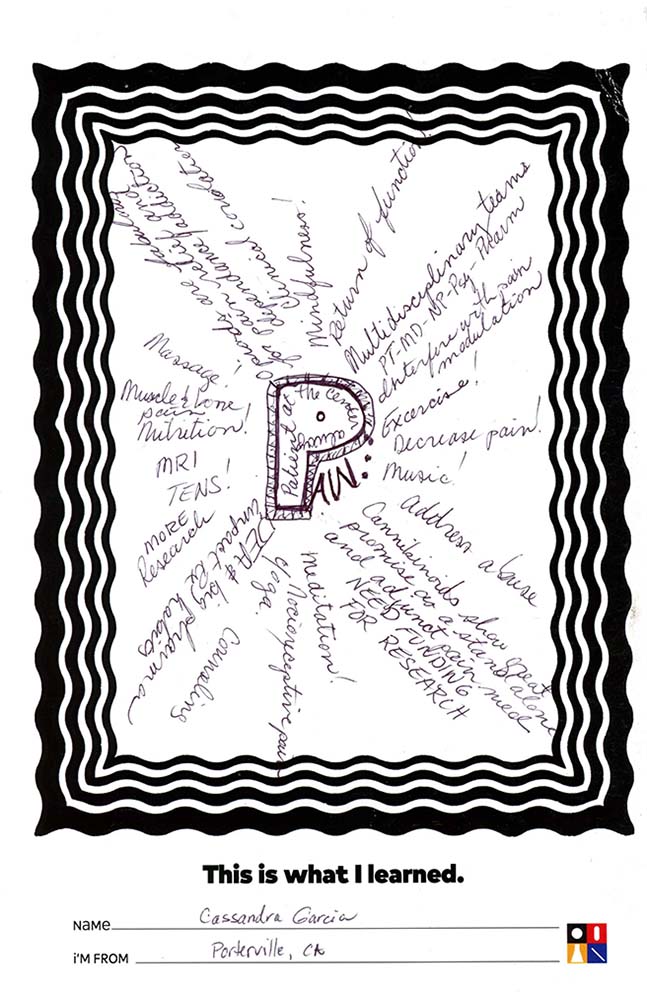 Opioids are fabulous
for pain relief and
dependance / addiction
Clinical
Mindfulness!
Return of function!
Multidisciplinary teams
PT-MD-NP-Psy-Pharm
Interfere with pain
modulation
Excercise!
Decrease pain!
Music!
address abuse
Cannibinoids show great
promise as a stand alone
and adjunct pain med
NEED FUNDING
FOR RESEARCH
Meditation!
Nocioreceptive pain
Yoga
Counseling
DEA & big pharma
impact Rx
MORE
Research
MRI
TENS!
Massage!
Muscle & bone
pain
Nutrition!
P
Patient at the center
always
AW:
This is what I learned.
NAME Cassandra Garcia
I'M FROM Porterville, CA